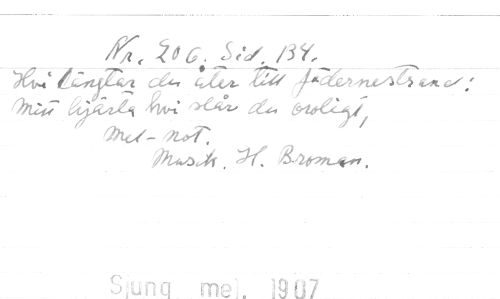 Nr. 206. Sid. 134.
Hvi längtar du åter till fädernestrand:
Mitt hjärta hvi slår du oroligt,
Mel-not.
Musik. H. Broman.
Sjung mej. 1907